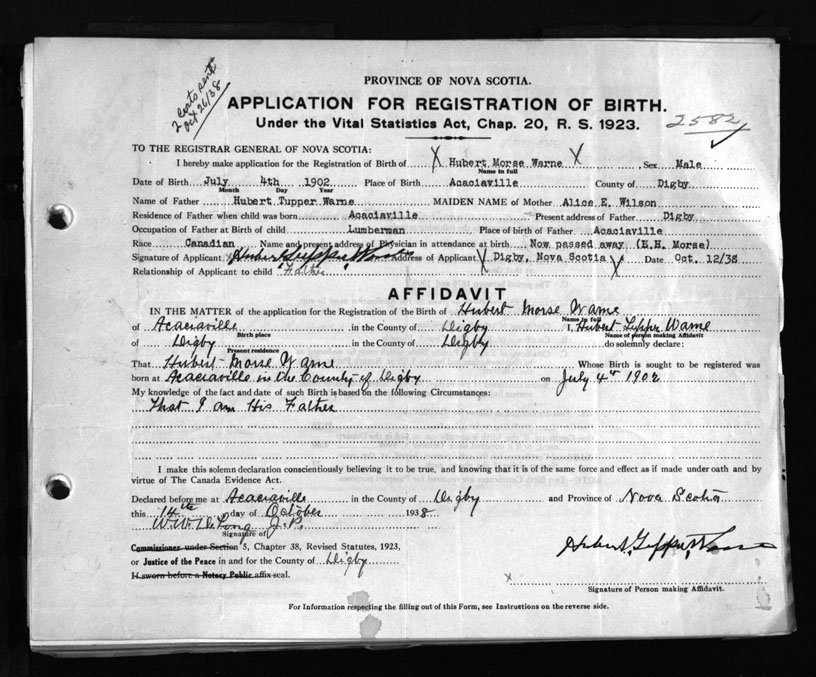 2 certs sent
Oct 26/38
PROVINCE OF NOVA SCOTIA.
APPLICATION FOR REGISTRATION OF BIRTH.
2582
Under the Vital Statistics Act, Chap. 20, R. S. 1923.
TO THE REGISTRAR GENERAL OF NOVA SCOTIA:
I hereby make application for the Registration of Birth of X Hubert Morse Warne X, Sex Male
Name in full
Date of Birth July 4th 1902 Place of Birth Acaciaville County of Digby
Month Day Year
Name of Father Hubert Tupper Warne MAIDEN NAME of Mother Alice E. Wilson
Residence of Father when child was born Acaciaville Present address of Father Digby
Occupation of Father at Birth of child Lumberman Place of birth of Father Acaciaville
Race Canadian Name and present address of Physician in attendance at birth Now passed away (E.H. Morse)
Signature of Applicant Hubert Tupper Warne Address of Applicant X Digby, Nova Scotia X Date Oct. 12/38
Relationship of Applicant to child "Father"
AFFIDAVIT
IN THE MATTER of the application for the Registration of the Birth of Hubert Morse Warne
Name in full
of Acaciaville in the County of Digby I, Hubert Tupper Warne
Birth place Name of person making Affidavit
of Digby in the County of Digby do solemnly declare:
Present residence
That Hubert Morse Warne Whose Birth is sought to be registered was
born at Acaciaville in the County of Digby on July 4th 1902
My knowledge of the fact and date of such Birth is based on the following Circumstances:
That I am His Father
I make this solemn declaration conscientiously believing it to be true, and knowing that it is of the same force and effect as if made under oath and by
virtue of The Canada Evidence Act.
Declared before me at Acaciaville in the County of Digby and Province of Nova Scotia
this 14th day of October 1938
W.W. DeLong J.P.
Signature of
Commissioner under Section 5, Chapter 38, Revised Statutes, 1923,
Hubert Tupper Warne
or Justice of the Peace in and for the County of Digby
If sworn before a Notary Public affix seal.
X
Signature of Person making Affidavit.
For Information respecting the filling out of this Form, see Instructions on the reverse side.